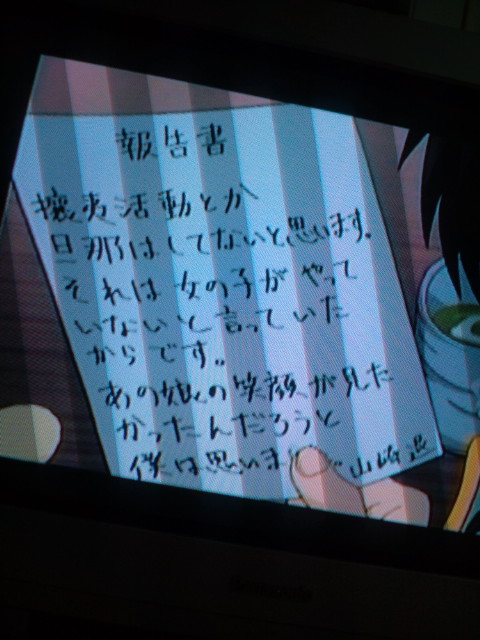 報告書
攘夷活動とか
旦那はしてないと思います。
それは女の子がやって
いないと言っていた
からです。
あの娘の笑顔が見た
かったんだろうと
僕は思いま
山崎退